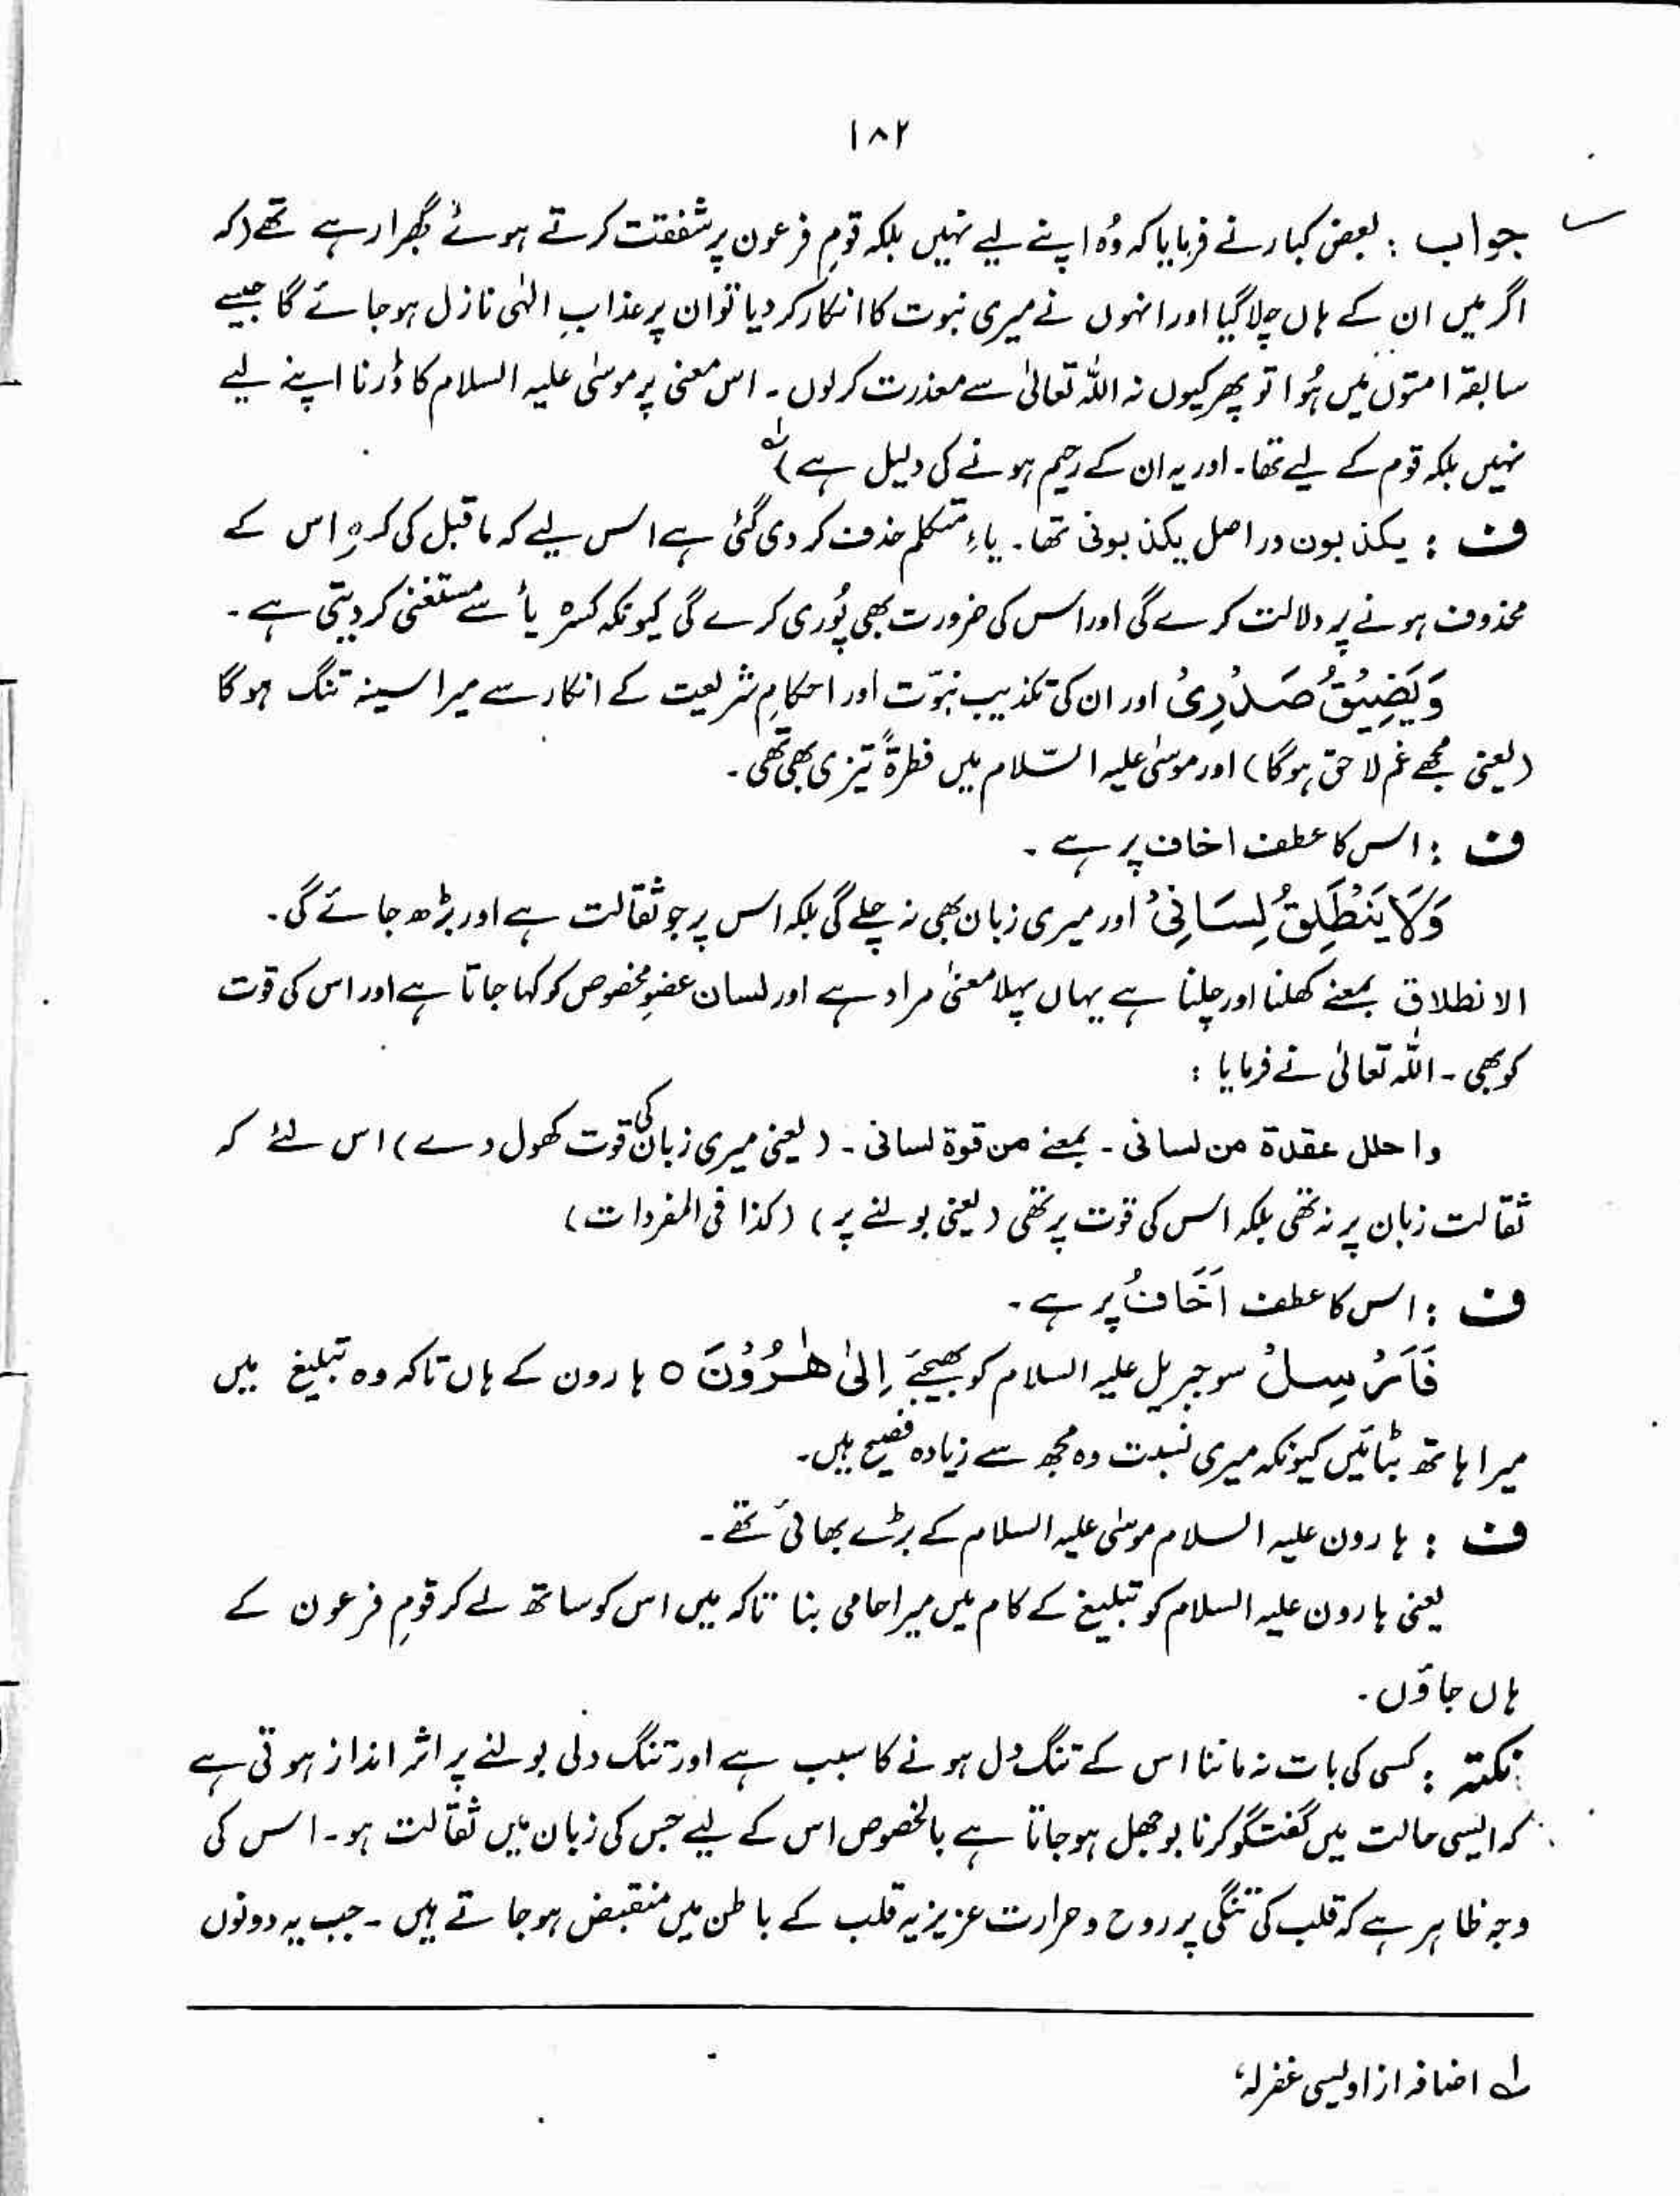 ۱۸۲
جواب : بعض کبار نے فرمایا کہ وُہ اپنے لیے نہیں بلکہ قومِ فرعون پر شفقت کرتے ہوئے گھبرا رہے تھے (کہ
اگر میں ان کے ہاں چلا گیا اور انہوں نے میری نبوت کا انکار کر دیا تو ان پر عذابِ الہٰی نازل ہو جائے گا جیسے
سابقہ امتوں میں ہُوا تو پھر کیوں نہ اللہ تعالیٰ سے معذرت کر لوں۔ اس معنی پر موسیٰ علیہ السلام کا ڈرنا اپنے لیے
نہیں بلکہ قوم کے لیے تھا۔ اور یہ ان کے رحیم ہونے کی دلیل ہے) لہ
ف : یکذبون دراصل یکذبونی تھا۔ یاءِ متکلم حذف کر دی گئی ہے اس لیے کہ ماقبل کی کسرہ اس کے
محذوف ہونے پر دلالت کرے گی اور اس کی ضرورت بھی پُوری کرے گی کیونکہ کسرہ یأ سے مستغنی کر دیتی ہے۔
وَيَضِيْقُ صَدْرِيْ اور ان کی تکذیبِ نبوّت اور احکامِ شریعت کے انکار سے میرا سینہ تنگ ہو گا
(یعنی مجھے غم لاحق ہوگا) اور موسیٰ علیہ السّلام میں فطرۃً تیزی بھی تھی۔
ف : اس کا عطف اخاف پر ہے ۔
وَلَا يَنْطَلِقُ لِسَانِيْ اور میری زبان بھی نہ چلے گی بلکہ اس پر جو ثقالت ہے اور بڑھ جائے گی۔
الانطلاق بمعنے کھلنا اور چلنا ہے یہاں پہلا معنیٰ مراد ہے اور لسان عضوِ مخصوص کو کہا جاتا ہے اور اس کی قوت
کو بھی ۔ اللہ تعالیٰ نے فرمایا :
واحلل عقدة من لسانی ۔ بمعنے من قوة لسانی ۔ (یعنی میری زبان کی قوت کھول دے) اس لئے کہ
ثقالت زبان پر نہ تھی بلکہ اس کی قوت پر تھی (یعنی بولنے پر) (کذا فی المفردات)
ف : اس کا عطف اَخَافُ پر ہے ۔
فَاَرْسِلْ سو جبریل علیہ السلام کو بھیجئے اِلىٰ هٰرُوْنَ ○ ہارون کے ہاں تاکہ وہ تبلیغ میں
میرا ہاتھ بٹائیں کیونکہ میری نسبت وہ مجھ سے زیادہ فصیح ہیں۔
ف : ہارون علیہ السلام موسیٰ علیہ السلام کے بڑے بھائی تھے ۔
یعنی ہارون علیہ السلام کو تبلیغ کے کام میں میرا حامی بنا تاکہ میں اس کو ساتھ لے کر قومِ فرعون کے
ہاں جاؤں ۔
نکتہ : کسی کی بات نہ ماننا اس کے تنگ دل ہونے کا سبب ہے اور تنگ دلی بولنے پر اثر انداز ہوتی ہے
کہ ایسی حالت میں گفتگو کرنا بوجھل ہو جاتا ہے بالخصوص اس کے لیے جس کی زبان میں ثقالت ہو۔ اس کی
وجہ ظاہر ہے کہ قلب کی تنگی پر روح و حرارت عزیزیہ قلب کے باطن میں منقبض ہو جاتے ہیں ۔ جب یہ دونوں
لہ اضافہ از اویسی غفرلہٗ